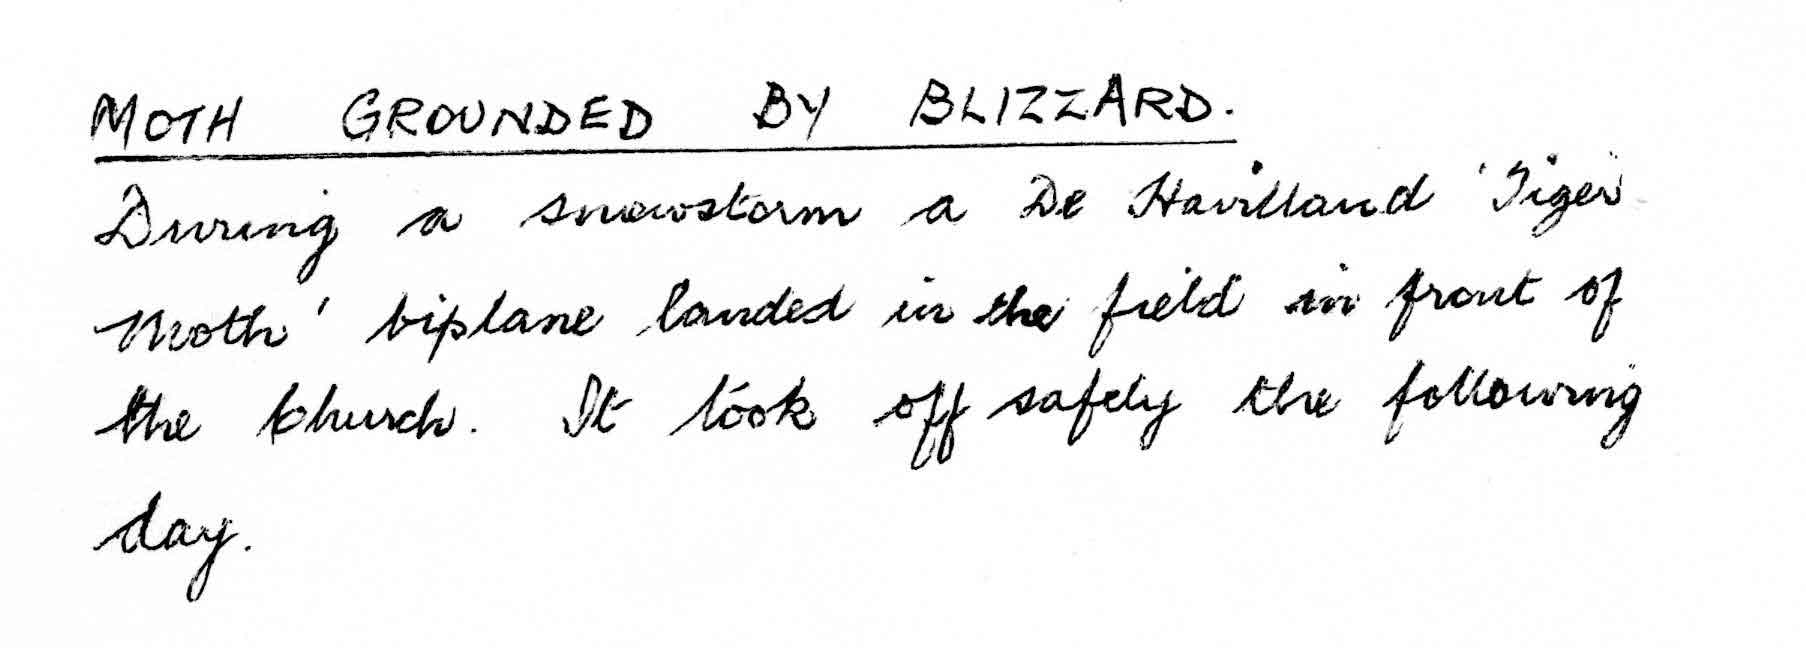 MOTH GROUNDED BY BLIZZARD.
During a snowstorm a De Havilland 'Tiger
Moth' biplane landed in the field in front of
the Church. It took off safely the following
day.